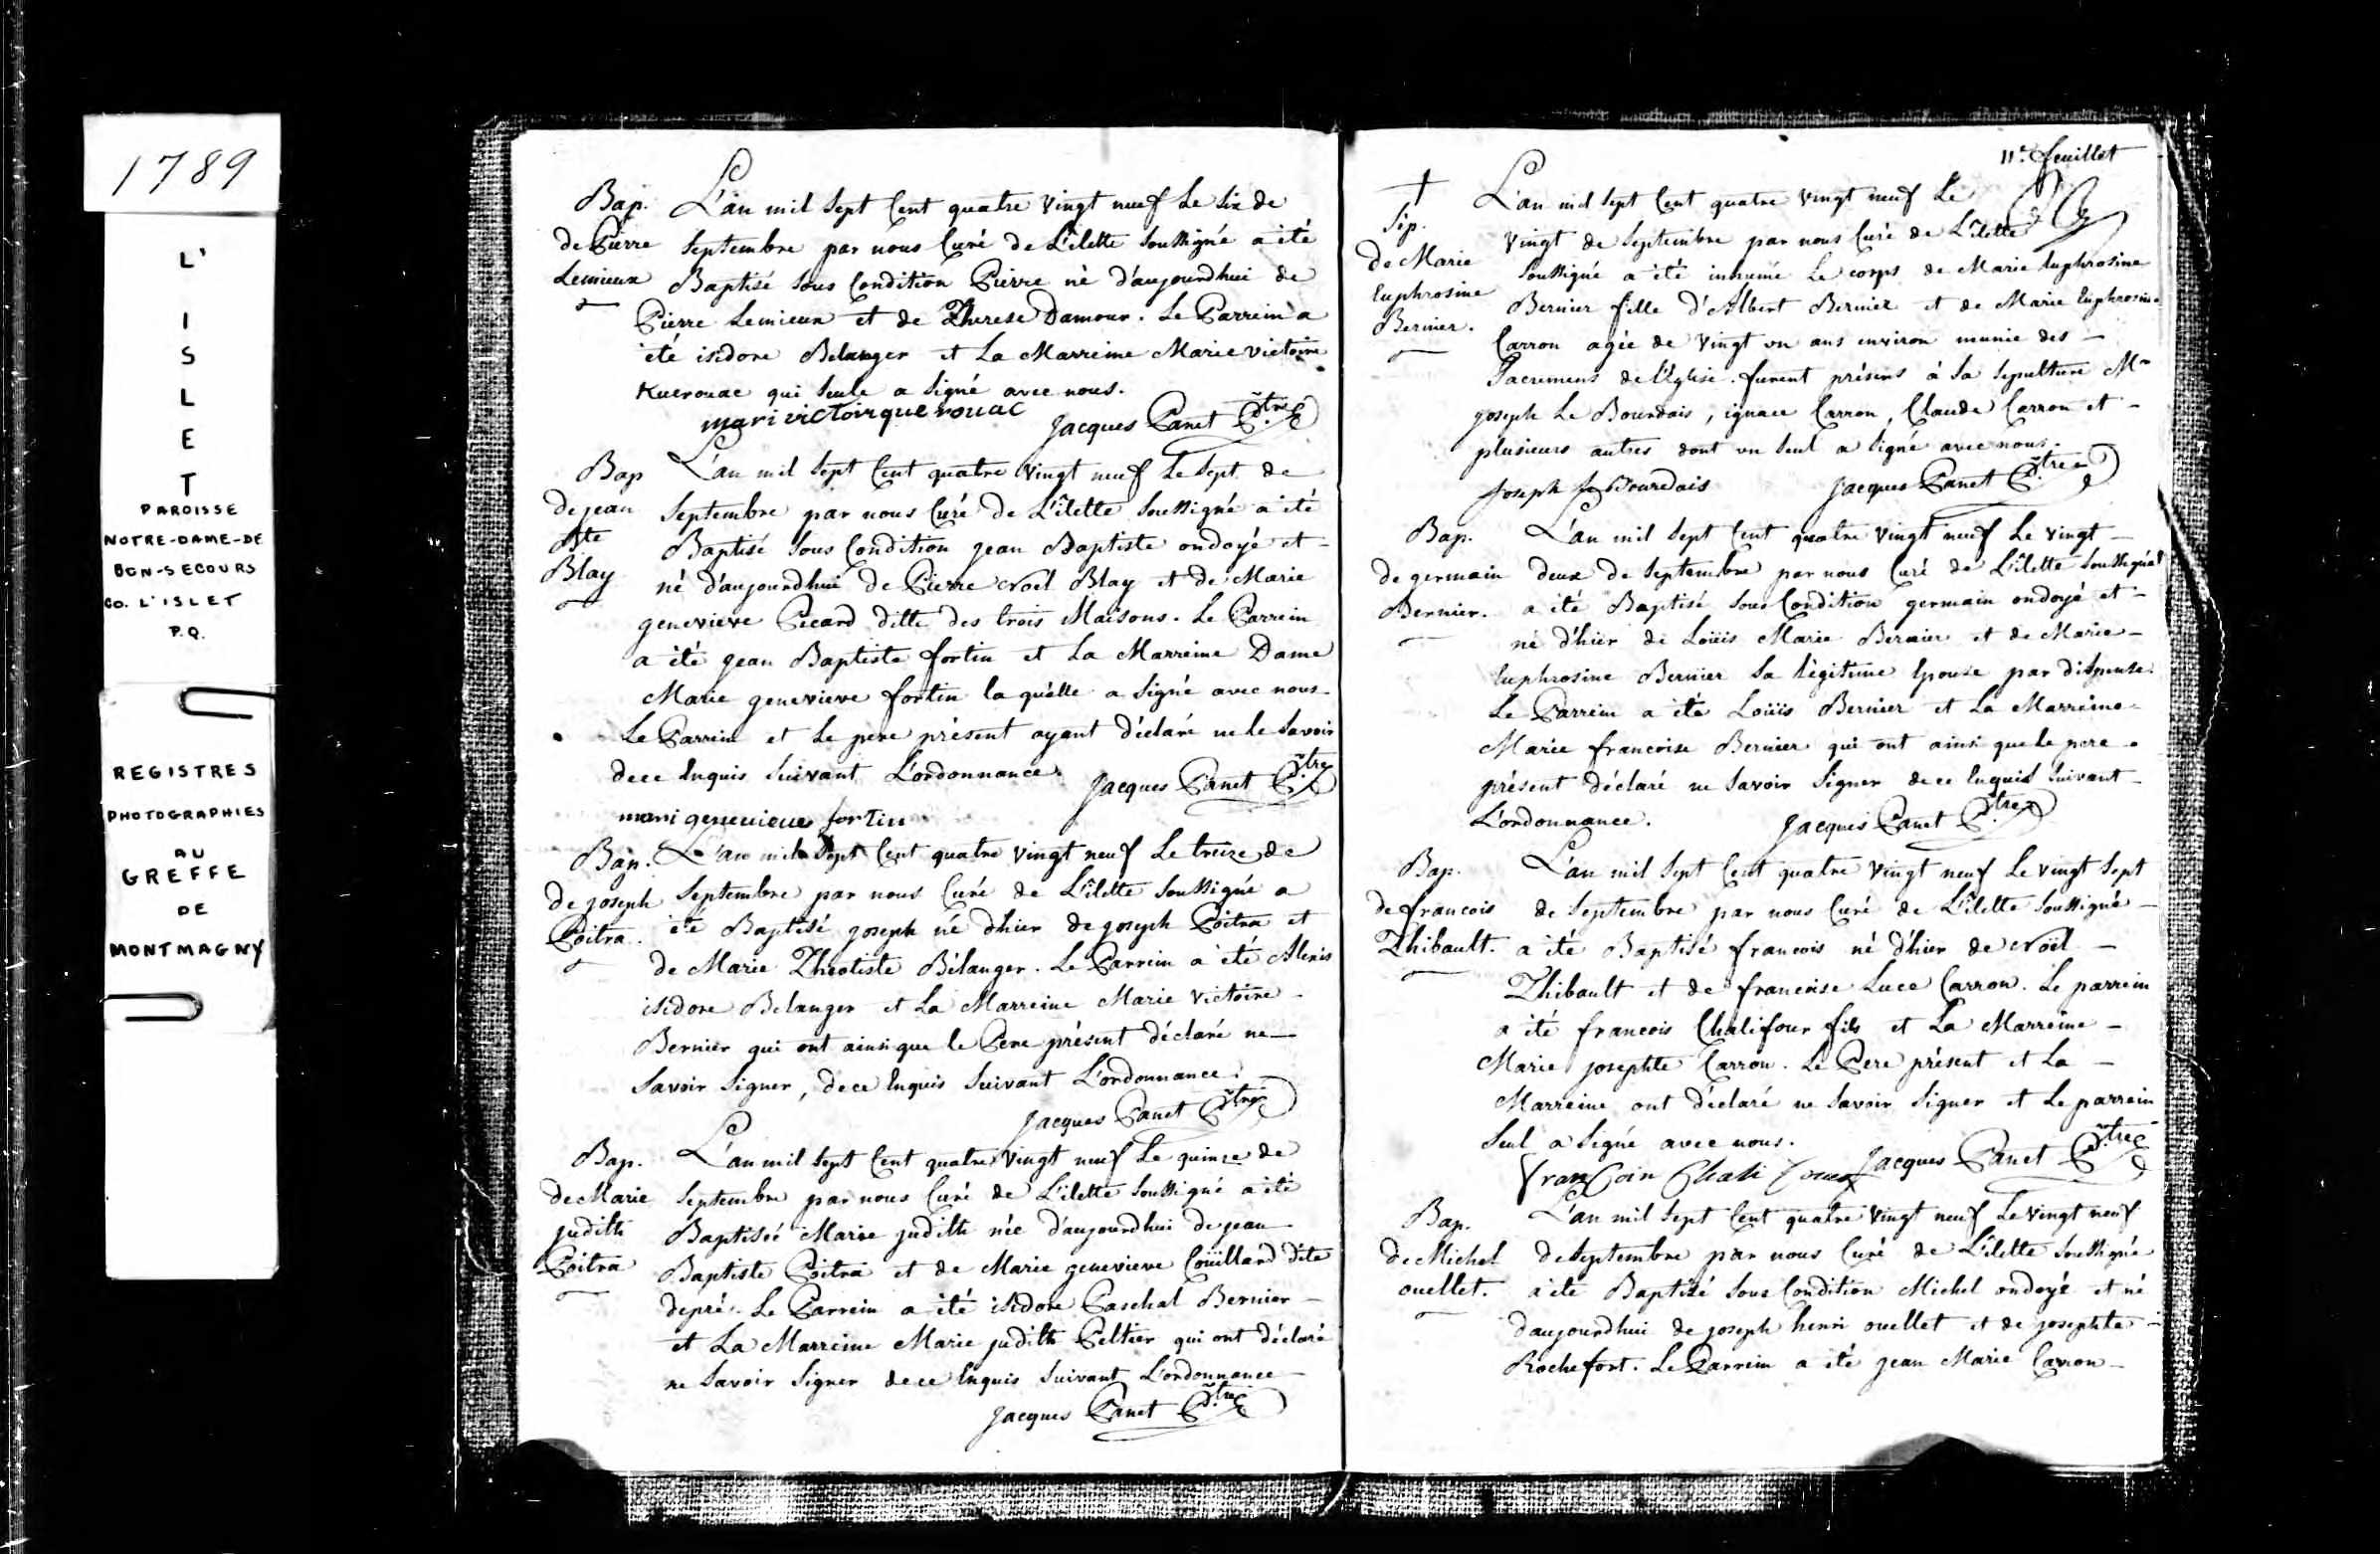 1789
L'
I
S
L
E
T
PAROISSE
NOTRE-DAME-DE
BON-SECOURS
CO. L'ISLET
P.Q.
REGISTRES
PHOTOGRAPHIES
AU
GREFFE
DE
MONTMAGNY
Bap. L'an mil Sept Cent quatre vingt neuf Le Six de
de Pierre Septembre par nous Curé de L'ilette Soussigné a été
Lemieux Baptisé Sous Condition Pierre né d'aujourdhui de
Pierre Lemieux et de Therese Damour. Le Parrein a
été isidore Belanger et La Marreine Marie victoire
Kuerouac qui Seule a Signé avec nous.
mari victoir querouac Jacques Panet Ptre
Bap L'an mil Sept Cent quatre vingt neuf Le Sept de
de jean Septembre par nous Curé de L'ilette Soussigné a été
Bte Baptisé Sous Condition jean Baptiste ondoyé et
Blay né d'aujourdhui de Pierre Noël Blay et de Marie
genevieve Picard ditte des trois Maisons. Le Parrein
a été jean Baptiste fortin et La Marreine Dame
Marie genevieve fortin la quelle a Signé avec nous
Le Parrein et Le pere présent ayant déclaré ne le Savoir
de ce Enquis Suivant L'ordonnance. Jacques Panet Ptre
mari genevieve fortin
Bap. L'an mil Sept Cent quatre vingt neuf Le treize de
de joseph Septembre par nous Curé de L'ilette Soussigné a
Poitra. été Baptisé joseph né d'hier de joseph Poitra et
de Marie Theotiste Bélanger. Le Parrein a été Alexis
isidore Belanger et La Marreine Marie victoire
Bernier qui ont ainsi que le Pere présent déclaré ne
Savoir Signer, de ce Enquis Suivant L'ordonnance.
Jacques Panet Ptre
Bap. L'an mil Sept Cent quatre vingt neuf Le quinze de
de Marie Septembre par nous Curé de L'ilette Soussigné a été
judith Baptiséé Marie judith née d'aujourdhui de jean
Poitra Baptiste Poitra et de Marie genevieve Coüillard dite
depré. Le Parrein a été isidore Paschal Bernier
et La Marreine Marie judith Peltier qui ont déclaré
ne Savoir Signer de ce Enquis Suivant L'ordonnance
Jacques Panet Ptre
11e feuillet
† L'an mil Sept Cent quatre vingt neuf Le
Sép. vingt de Septembre par nous Curé de L'ilette
de Marie Soussigné a été inhumé Le corps de Marie Euphrosine
Euphrosine Bernier fille d'Albert Bernier et de Marie Euphrosine
Bernier. Carron agée de vingt un ans environ munie des
Sacremens de L'Eglise. furent présens à Sa Sepulture Mr
joseph Le Bourdais, ignace Carron, Claude Carron et
plusieurs autres dont un Seul a Signé avec nous.
Joseph Le Bourdais Jacques Panet Ptre
Bap. L'an mil Sept Cent quatre vingt neuf Le vingt
de germain deux de Septembre par nous Curé de L'ilette Soussigné
Bernier. a été Baptisé Sous Condition germain ondoyé et
né d'hier de Loüis Marie Bernier et de Marie
Euphrosine Bernier Sa légitime Epouse par dispense.
Le Parrein a été Loüis Bernier et La Marreine
Marie francoise Bernier qui ont ainsi que le pere
présent déclaré ne Savoir Signer de ce Enquis Suivant
L'ordonnance. Jacques Panet Ptre
Bap. L'an mil Sept Cent quatre vingt neuf Le vingt Sept
de francois de Septembre par nous Curé de L'ilette Soussigné
Thibault. a été Baptisé francois né d'hier de Noël
Thibault et de francoise Luce Carron. Le parrein
a été francois Chalifour fils et La Marreine
Marie josephte Carron. Le Pere présent et La
Marreine ont déclaré ne Savoir Signer et Le parrein
Seul a Signé avec nous. Jacques Panet Ptre
Bap. L'an mil Sept Cent quatre vingt neuf Le vingt neuf
de Michel de Septembre par nous Curé de L'ilette Soussigné
ouellet. a été Baptisé Sous Condition Michel ondoyé et né
d'aujourdhui de joseph henri ouellet et de josephte
Rochefort. Le Parrein a été jean Marie Carron